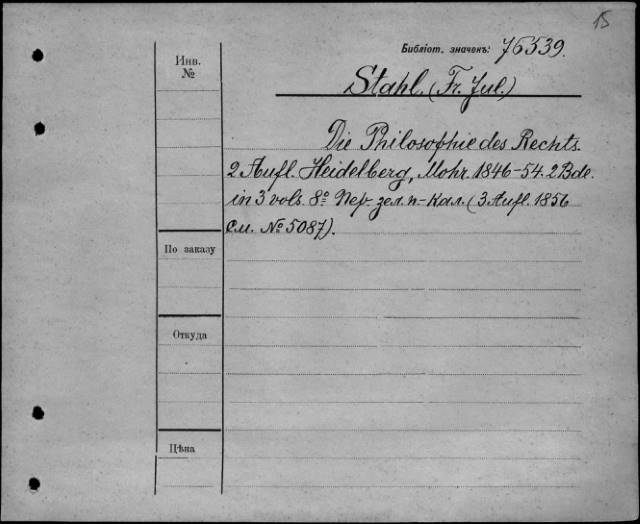 15
Библіот. значекъ: 76539.
Инв.
№
Stahl. (Fr. Jul.)
Die Philosophie des Rechts.
2 Aufl. Heidelberg, Mohr. 1846-54. 2 Bde.
in 3 vols. 8º Пер. зел. п-кал. (3 Aufl. 1856
См. № 5087).
По заказу
Откуда
Цѣна